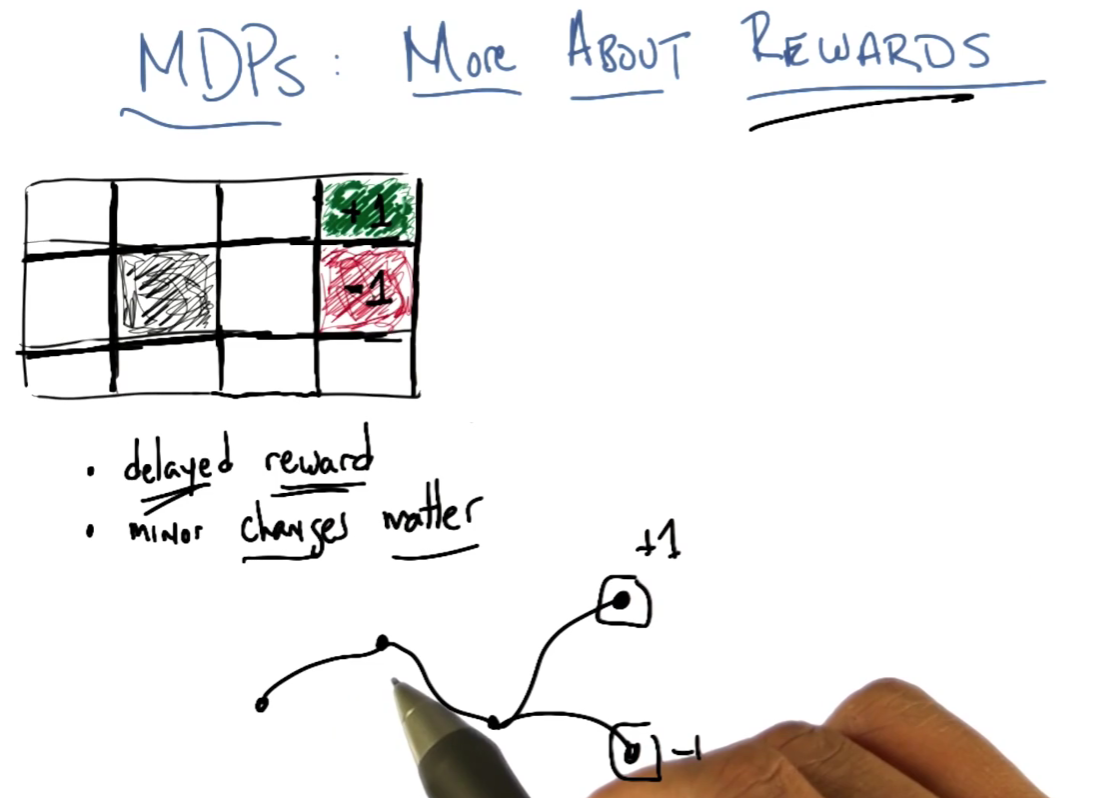 MDPs: More About Rewards
+1
-1
• delayed reward
• minor changes matter
+1
-1